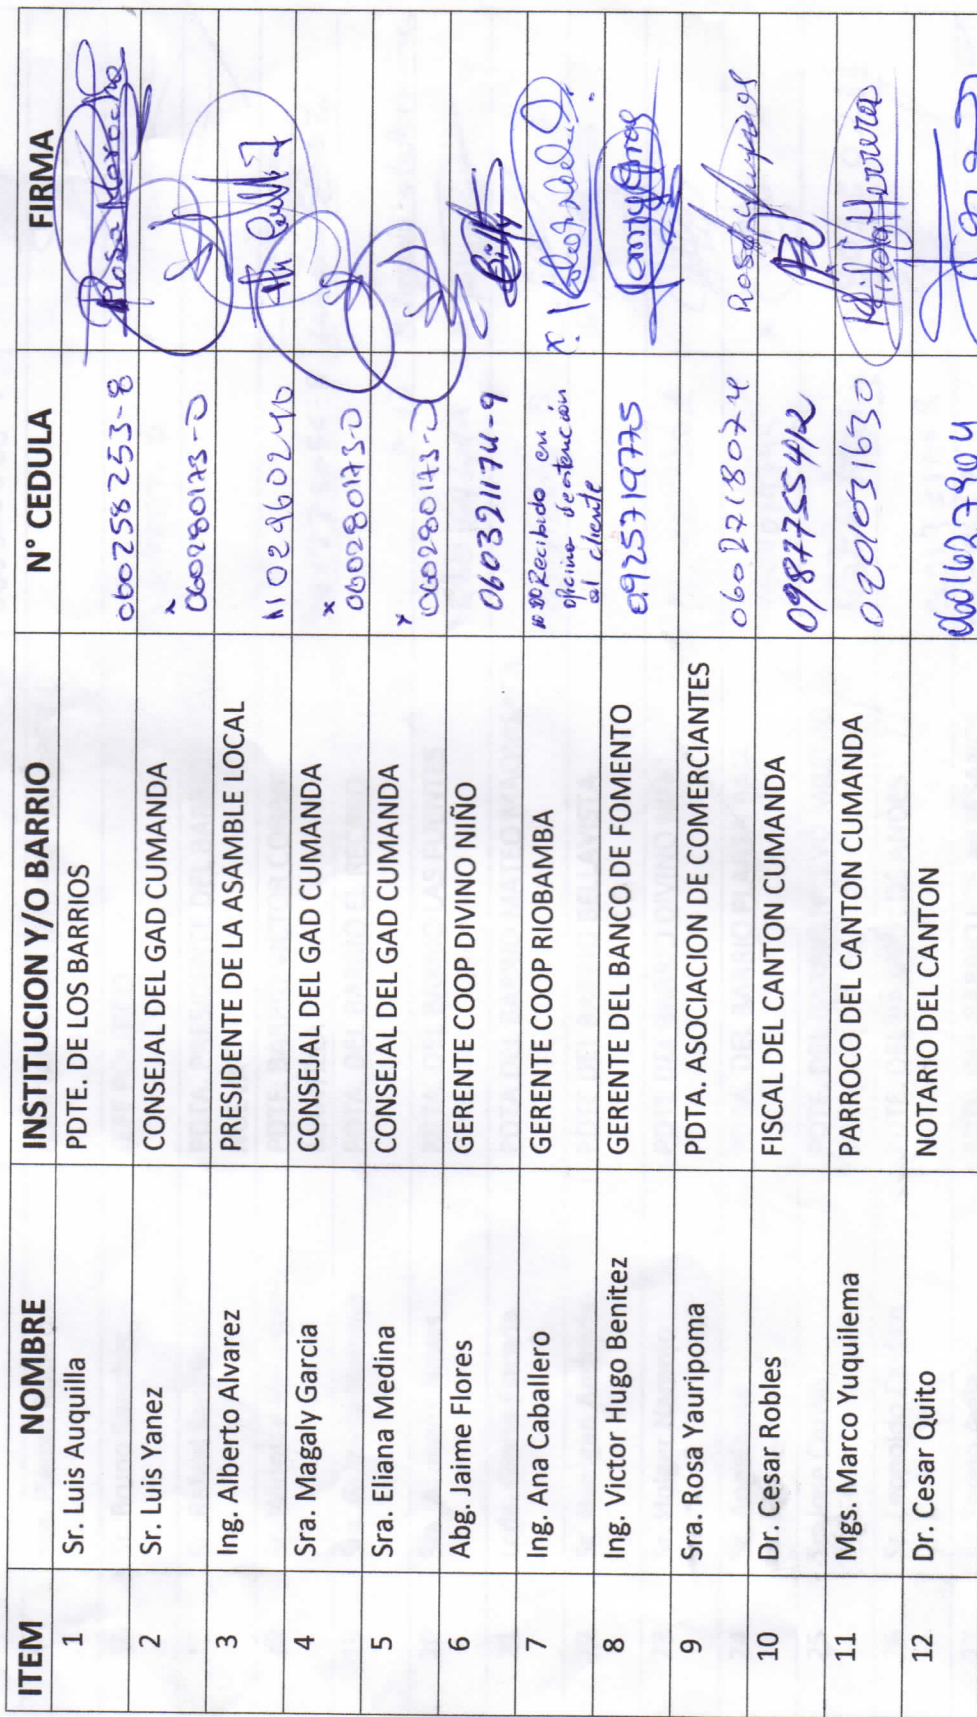 ITEM NOMBRE INSTITUCION Y/O BARRIO N° CEDULA FIRMA
1 Sr. Luis Auquilla PDTE. DE LOS BARRIOS 060258253-8 Rosa Morocho
2 Sr. Luis Yanez CONSEJAL DEL GAD CUMANDA x 060280173-0
3 Ing. Alberto Alvarez PRESIDENTE DE LA ASAMBLE LOCAL 1102960240
4 Sra. Magaly Garcia CONSEJAL DEL GAD CUMANDA x 060280173-0
5 Sra. Eliana Medina CONSEJAL DEL GAD CUMANDA x 060280173-0
6 Abg. Jaime Flores GERENTE COOP DIVINO NIÑO 060321174-9
7 Ing. Ana Caballero GERENTE COOP RIOBAMBA Recibido en
oficina de atención
al cliente
8 Ing. Victor Hugo Benitez GERENTE DEL BANCO DE FOMENTO 0925719775
9 Sra. Rosa Yauripoma PDTA. ASOCIACION DE COMERCIANTES 060271807-4 Rosa
10 Dr. Cesar Robles FISCAL DEL CANTON CUMANDA
11 Mgs. Marco Yuquilema PARROCO DEL CANTON CUMANDA 0201031630 Herrera
12 Dr. Cesar Quito NOTARIO DEL CANTON